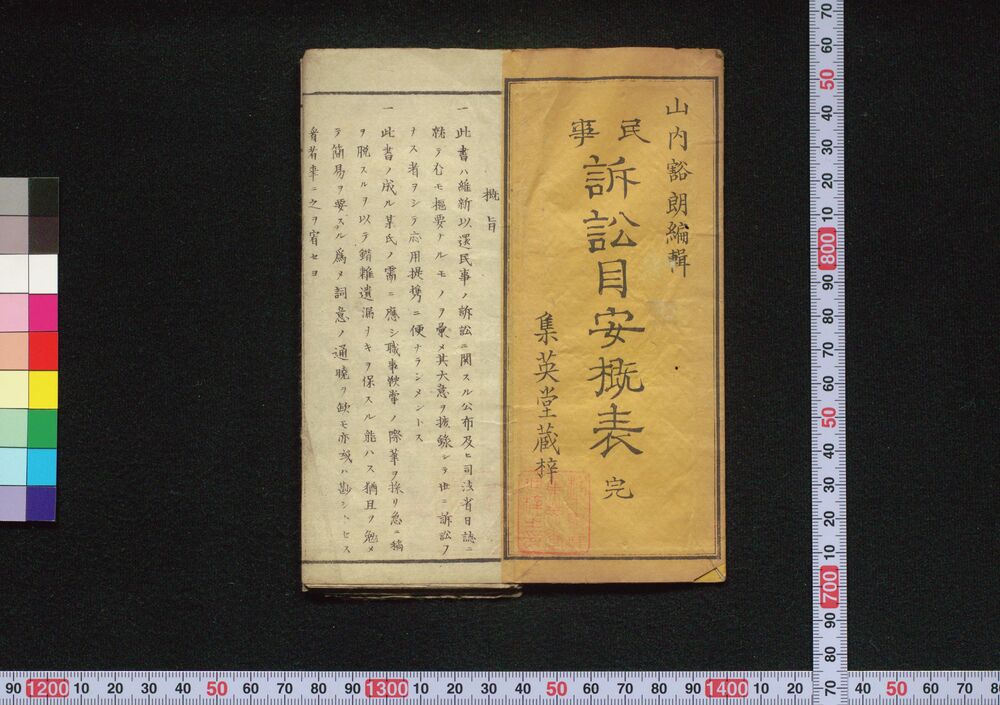 山内豁朗編輯
民事
訴訟目安概表 完
集英堂蔵梓
概旨
一此書ハ維新以還民事ノ訴訟ニ関スル公布及ヒ司法省日誌ニ
就テ苟モ極要ナルモノヲ彙メ其大意ヲ抜録シテ世ニ訴訟ヲ
ナス者ヲシテ応用提携ニ便ナラシメントス
一此書ノ成ル某氏ノ需ニ應シ職事鞅掌ノ際筆ヲ操リ急ニ稿
ヲ脱スルヲ以テ錯雑遺漏ヲキヲ保スル能ハス猶且ヲ勉メ
テ簡易ヲ要スル為メ詞意ノ通曉ヲ缺モ亦或ハ尠シトセス
看者幸ニ之ヲ宥セヨ
70
60
50
40
30
20
10
800
90
80
70
60
50
40
30
20
10
700
90
80
70
90 1200 10 20 30 40 50 60 70 80 90 1300 10 20 30 40 50 60 70 80 90 1400 10 20 30 40 50 60 70 80